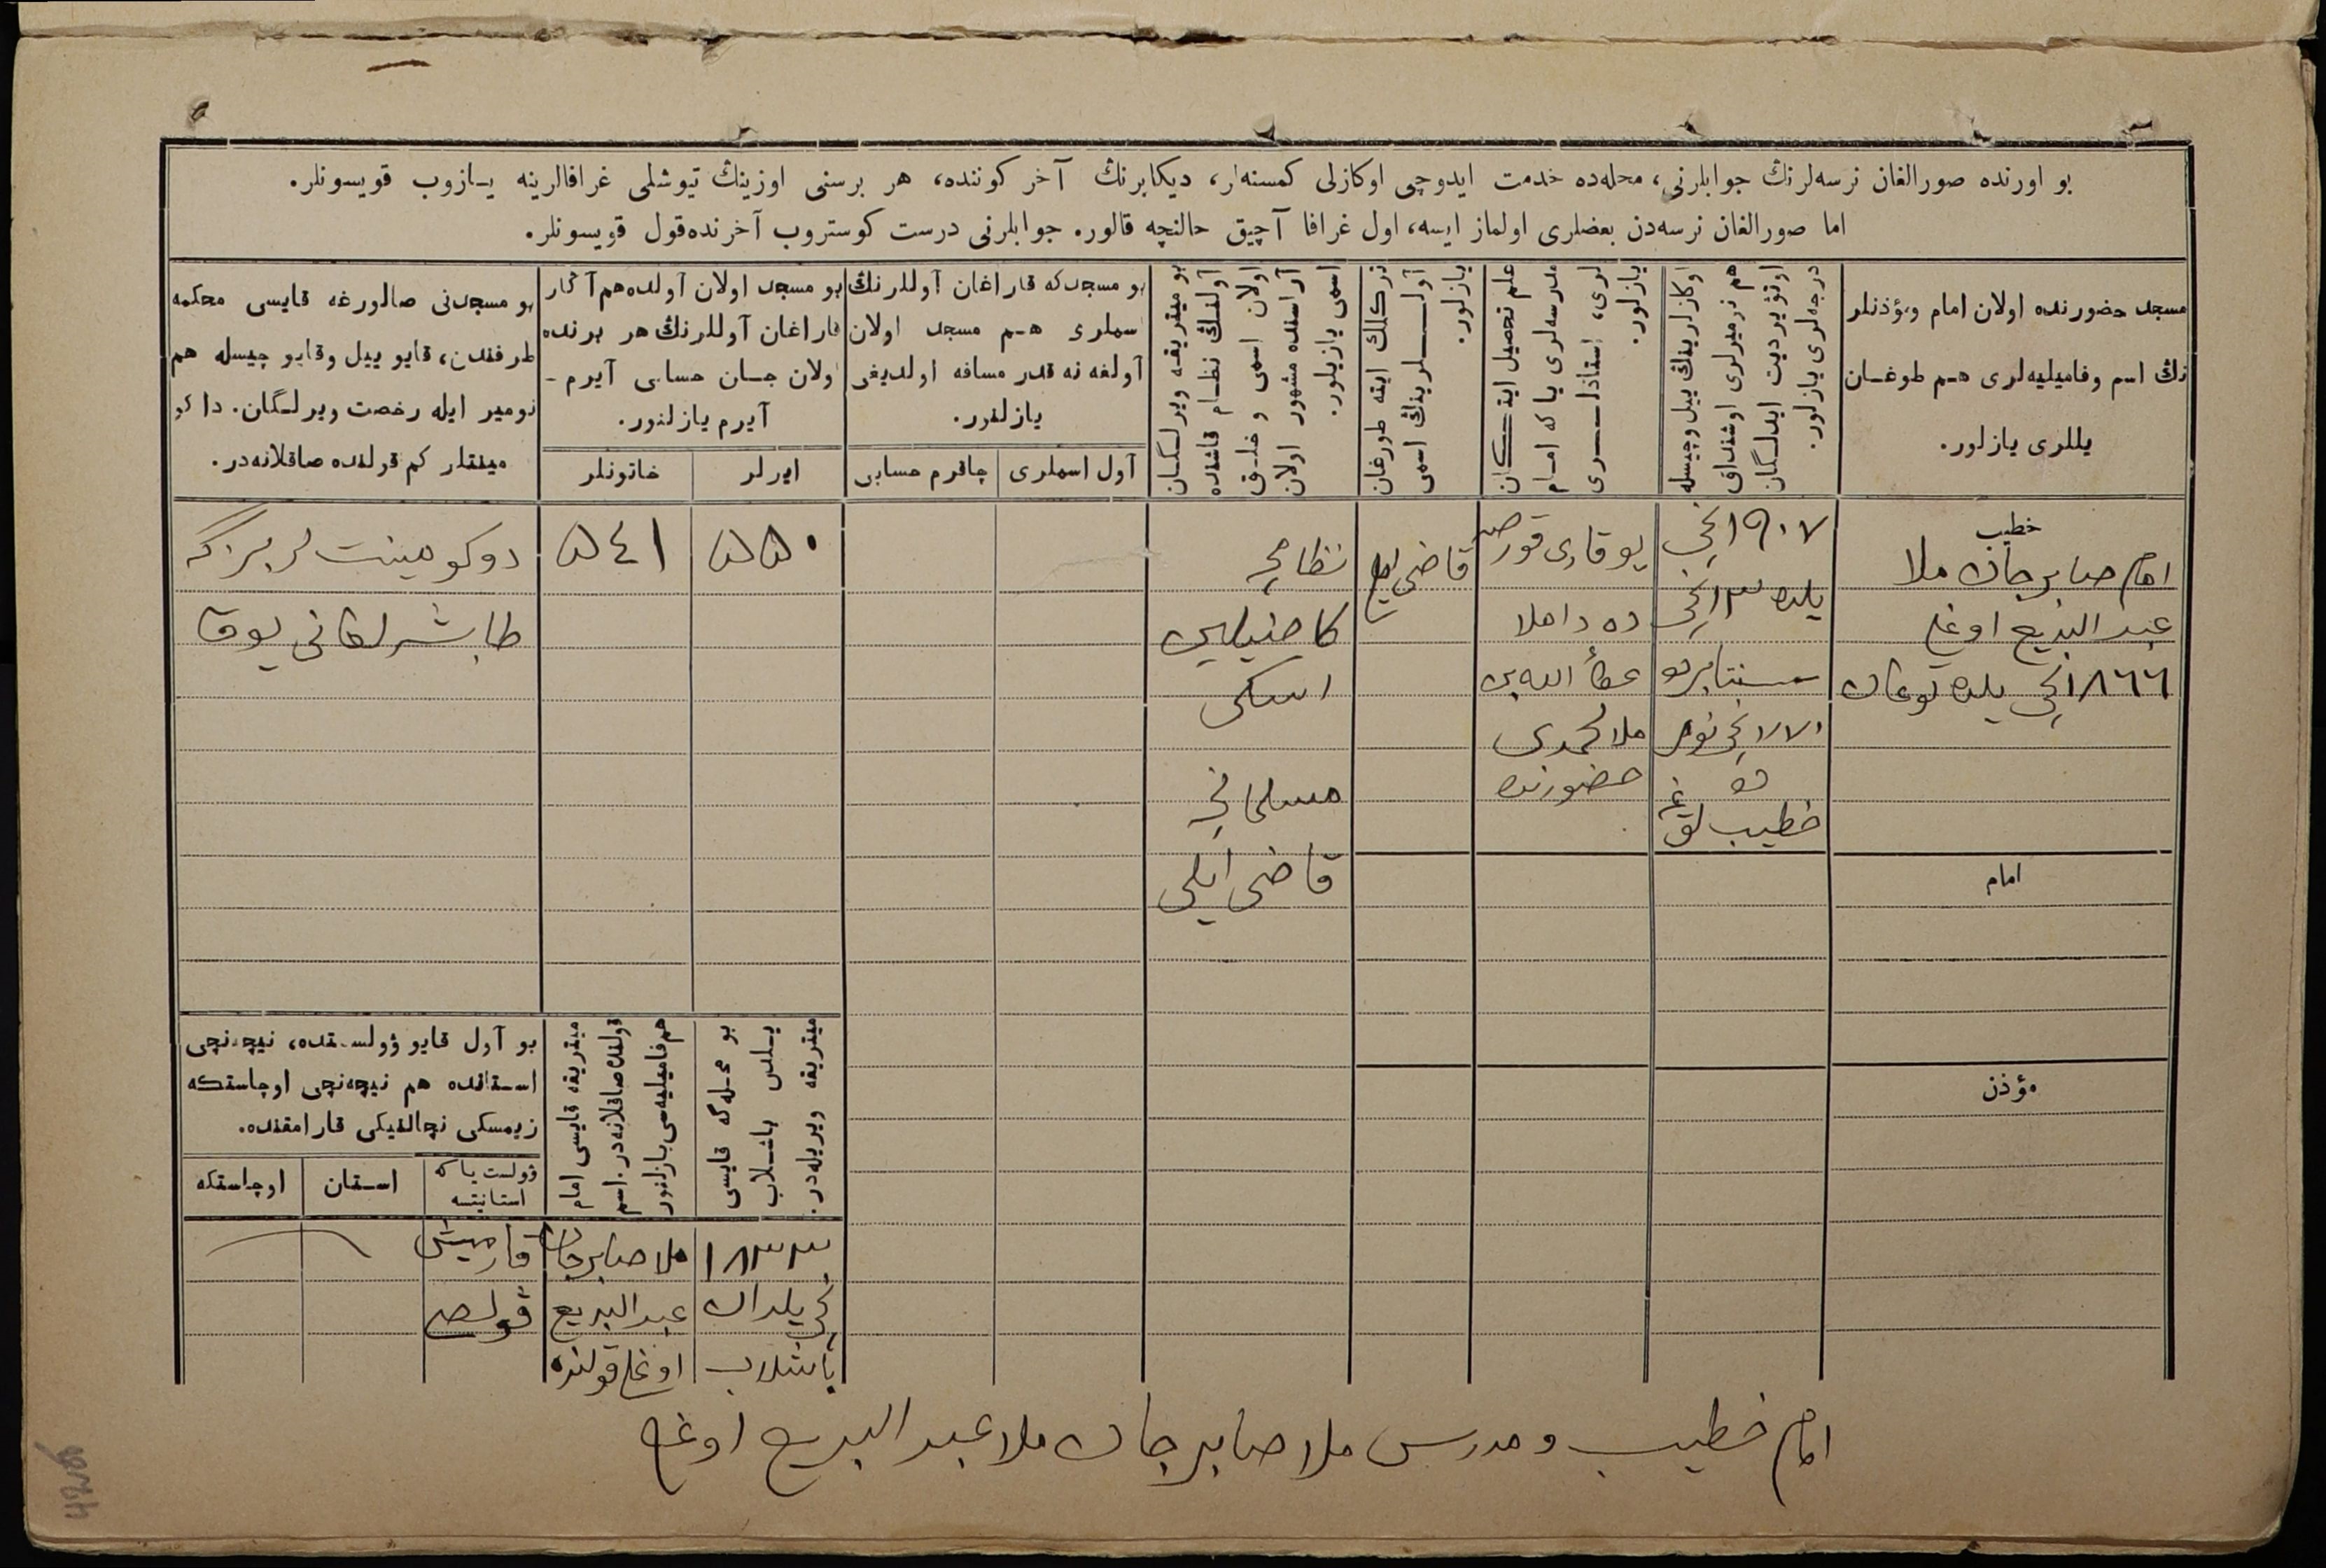 بو اورنده صورالغان نرسه‌لرنڭ جوابلرنی، محله‌ده خدمت ایدوچی اوکازلی کمسنه‌لر، دیکابرنڭ آخر کوننده، هر برسنی اوزینڭ تیوشلی غرافالرینه یازوب قویسونلر.
اما صورالغان نرسه‌دن بعضلری اولماز ایسه، اول غرافا آچیق حالنچه قالور. جوابلرنی درست کوستروب آخرنده قول قویسونلر.
مسجد حضورنده اولان امام ومؤذنلر
نڭ اسم وفامیلیه‌لری هم طوغان
یللری یازلور.
اوکازلرینڭ ییل وچیسله
هم نومیرلری اوشنداق
اوتۋیردیت ایدلگان
درجه‌لری یازلور.
علم تحصیل ایتکان
مدرسه‌لری یا که امام
لری، استاذلری
یازلور.
نرکلك ایته طورغان
آوللرینڭ اسمی
یازلور.
بو میتریقه ویرلگان
آولنڭ نظام قاشنده
اولان اسمی و خلق
آراسنده مشهور اولان
اسمی یازیلور.
بو مسجدکه قاراغان آوللرنڭ
اسملری هم مسجد اولان
آولغه نه قدر مسافه اولدیغی
یازلنور.
آول اسملری
چاقرم حسابی
بو مسجد اولان آولده هم آڭار
قاراغان آوللرنڭ هر برنده
اولان جان حسابی آیرم -
آیرم یازلنور.
ایرلر
خاتونلر
بو مسجدنی صالورغه قایسی محکمه
طرفندن، قایو ییل وقایو چیسله هم
نومیر ایله رخصت ویرلگان. داکو
مینتلر کم قولنده صاقلانه‌در.
خطیب
امام صابرجان ملا
عبد البدیع اوغلی
١٨٦٦ نچی یلده توغان
١٩٠٧ نچی
یلده ١٣ نچی
سنتابرده
نچی نومر
ده
خطیب لق غه
یوقاری قورصه
ده داملا
عطأ الله بن
ملا محمدی
حضورنده
قاضی ایلی
نظامچی
اسکی
مسلمانچی
قاضی ایلی
٥٥٠
٥٤١
دوکومینت لر بزگه
طابشرلغانی یوق
امام
مؤذن
میتریقه ویریله‌در.
بو محله‌گه قایسی
یلدن باشلاب
میتریقه قایسی امام
قولنده صاقلانه‌در. اسم
هم فامیلیه‌سی یازلنور
بو آول قایو ۋولستده، نیچه‌نچی
استانده هم نیچه‌نچی اوچاستکه
زیمسکی نچالنیکی قارامقنده.
ۋولست یا که
استانیتسه
استان
اوچاستکه
١٨٣٣
نچی یلدان
باشلاب
ملا صابرجان
عبد البدیع
اوغلی قولنده
قارمیش
ۋولص
امام خطیب و مدرس ملا صابر جان ملا عبد البدیع اوغلی